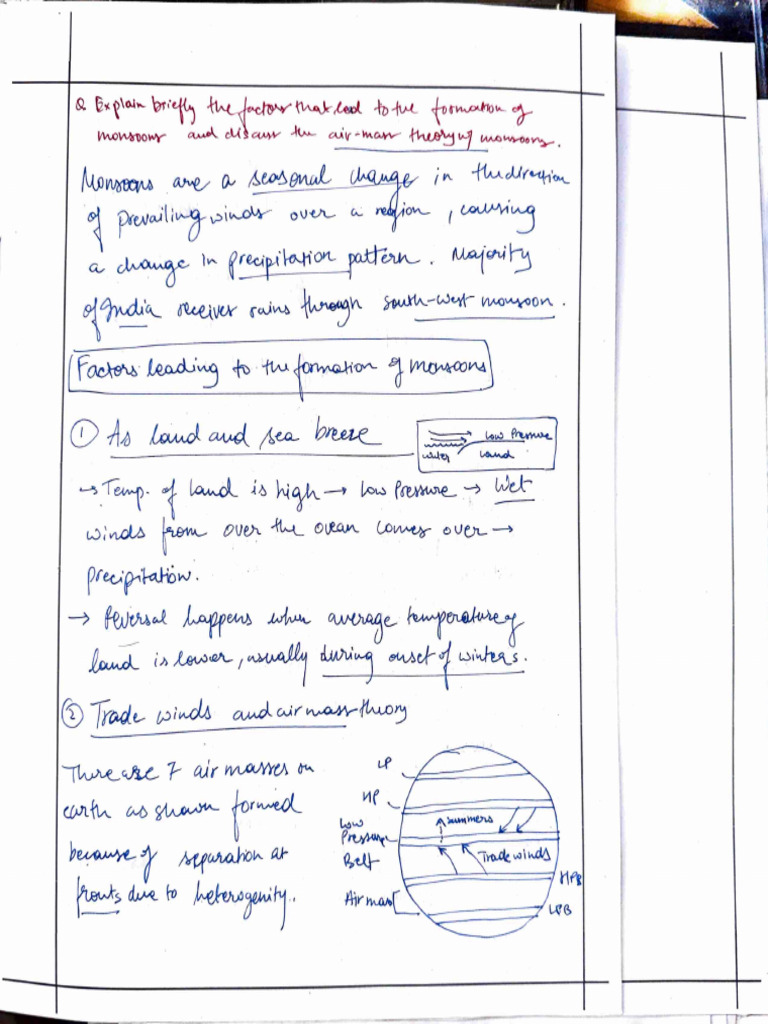 Q Explain briefly the factors that lead to the formation of
monsoons and discuss the air-mass theory of monsoons.
Monsoons are a seasonal change in the direction
of prevailing winds over a region, causing
a change in precipitation pattern. Majority
of India receives rains through south-west monsoon.
Factors leading to the formation of monsoons
① As land and sea breeze
Low Pressure
water Land
→ Temp. of land is high → low Pressure → Wet
winds from over the ocean comes over →
precipitation.
→ Reversal happens when average temperature of
land is lower, usually during onset of winters.
② Trade winds and air mass theory
There are 7 air masses on
earth as shown formed
because of separation at
fronts due to heterogenity.
LP
HP
Low
Pressure
Belt
Air mass
summers
Trade winds
HPB
LPB